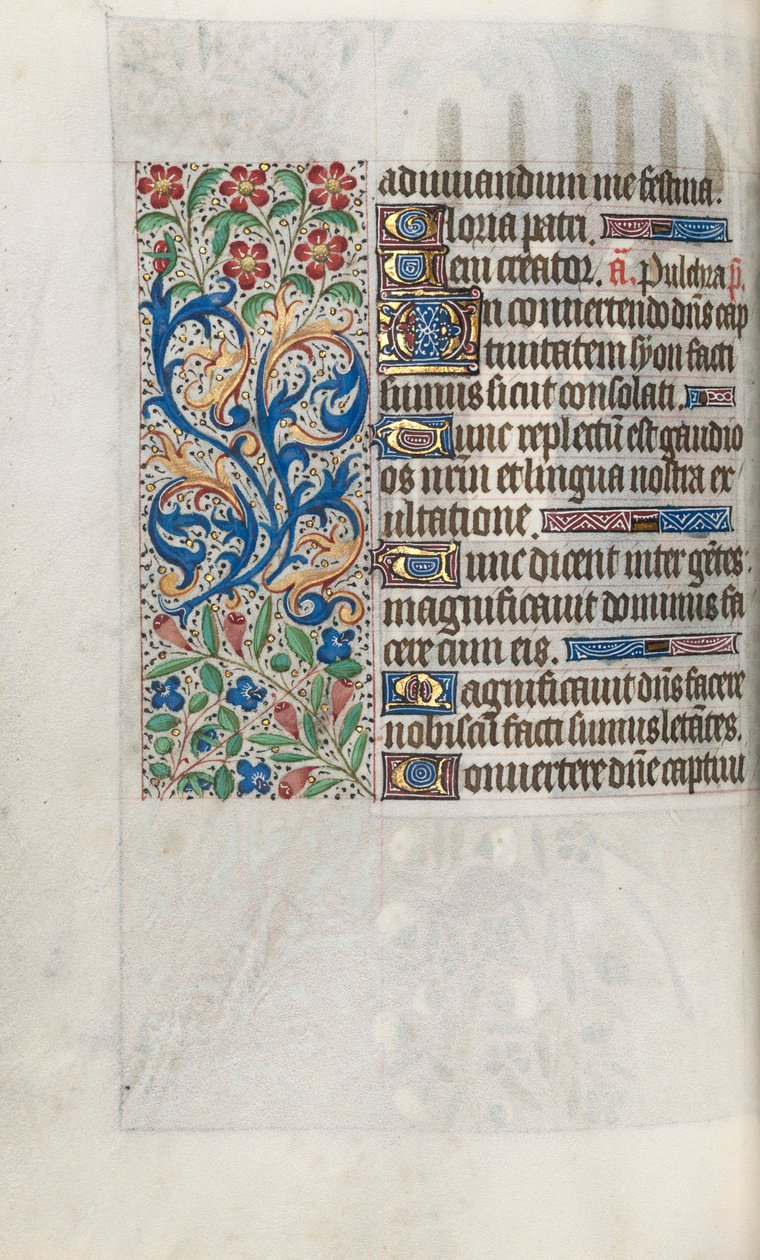 adiuuandum me festina.
Gloria patri.
Ueni creator. Ā. Pulchra p̄.
In conuertendo dn̄s cap
tiuitatem syon facti
sumus sicut consolati.
Tunc repletū est gaudio
os nr̄m et lingua nostra ex
ultatione.
Tunc dicent inter gētes:
magnificauit dominus fa
cere cum eis.
Magnificauit dn̄s facere
nobiscū facti sumus letātes.
Conuertere dn̄e captiui